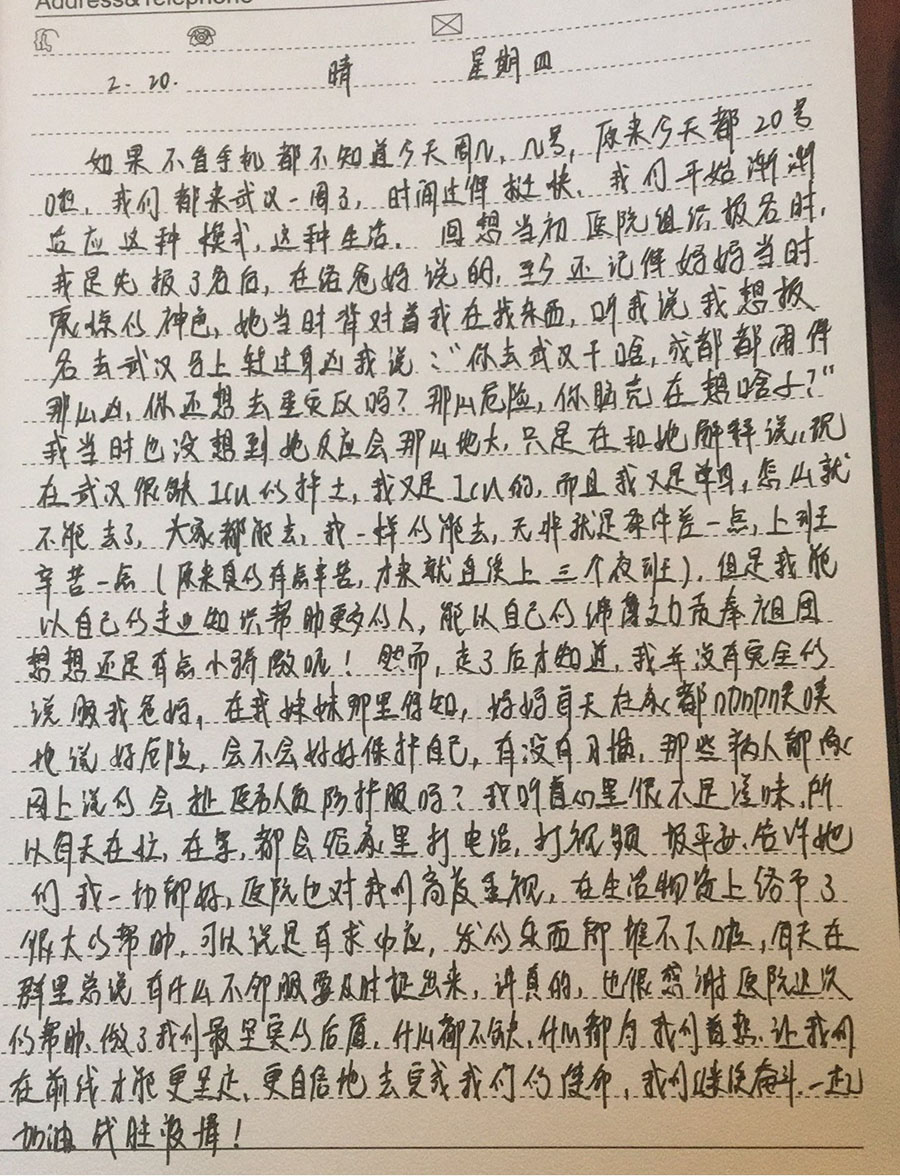 Address&Telephone
2.20. 晴 星期四
如果不看手机都不知道今天周几、几号,原来今天都20号
啦,我们都来武汉一周了,时间过得挺快,我们开始渐渐
适应这种模式,这种生活。回想当初医院组织报名时,
我是先报了名后,在给爸妈说的,至今还记得妈妈当时
震惊的神色,她当时背对着我在找东西,听我说我想报
名去武汉马上转过身凶我说:“你去武汉干啥,成都都闹得
那么凶,你还想去重灾区吗?那么危险,你脑壳在想啥子?”
我当时也没想到她反应会那么地大,只是在和她解释说,现
在武汉很缺ICU的护士,我又是ICU的,而且我又是单身,怎么就
不能去了,大家都能去,我一样的能去,无非就是条件差一点,上班
辛苦一点(原来真的有点辛苦,才来就连续上三个夜班),但是我能
以自己的专业知识帮助更多的人,能以自己的绵薄之力贡奉祖国
想想还是有点小骄傲呢!然而,走了后才知道,我并没有完全的
说服我爸妈,在我妹妹那里得知,妈妈每天在家都叨叨叨唉唉
地说好危险,会不会好好保护自己,有没有习惯,那些病人都像
网上说的会扯医务人员防护服吗?我听着心里很不是滋味,所
以每天在忙,在累,都会给家里打电话,打视频报平安、告诉她
们我一切都好,医院也对我们高度重视,在生活物资上给予了
很大的帮助,可以说是有求必应,发的东西都堆不下啦,每天在
群里总说有什么不舒服要及时提出来,讲真的,也很感谢医院这次
的帮助、做了我们最坚实的后盾,什么都不缺,什么都为我们着想、让我们
在前线才能更坚定、更自信地去完成我们的使命,我们继续奋斗.一起
加油战胜疫情!